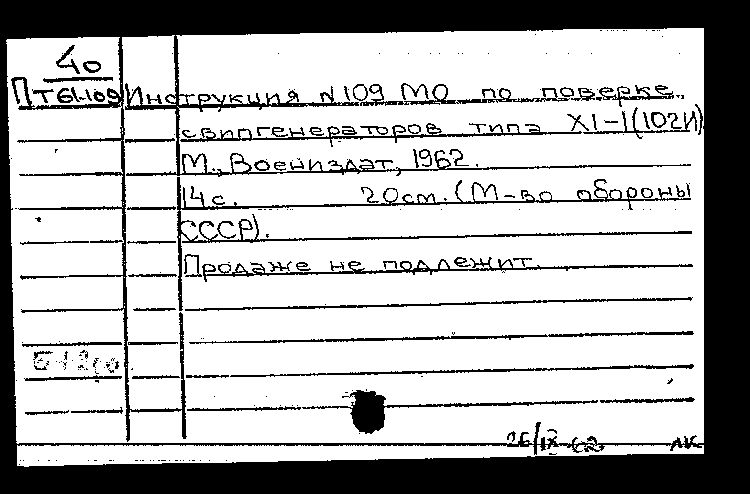 40
ПТ61-109 Инструкция №109 МО по поверке
свипгенераторов типа XI-I(102И)
М., Воениздат, 1962.
14с. 20см. (М-во обороны
СССР).
Продаже не подлежит.
26/IX-62